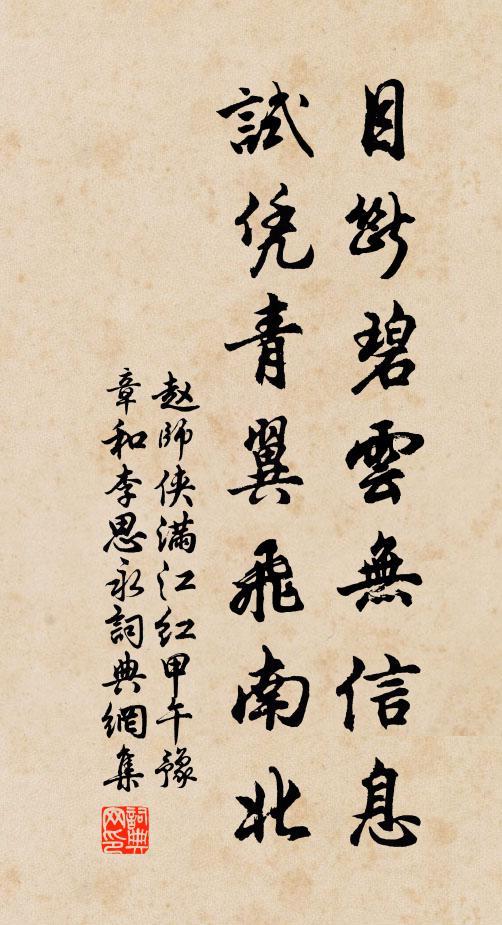 目斷碧雲無信息
試凭青翼飛南北
赵師侠满江红甲午豫
章和李思永詞典網集
詞典网印